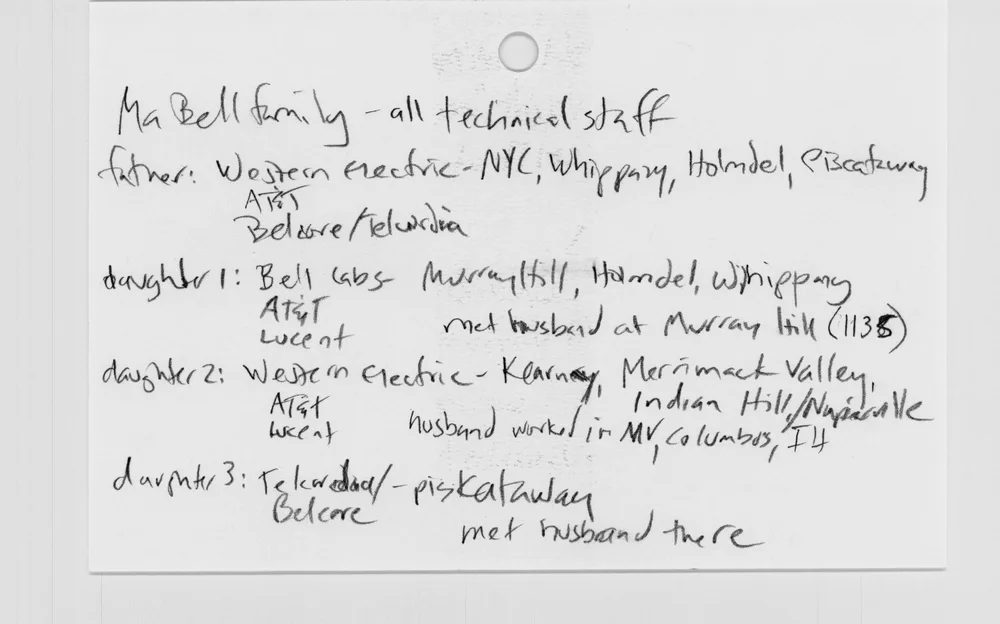 Ma Bell family - all technical staff
father: Western Electric - NYC, Whippany, Holmdel, Piscataway
AT&T
Belcore/Telcordia
daughter 1: Bell Labs - Murray Hill, Holmdel, Whippany
AT&T
Lucent met husband at Murray Hill (1135)
daughter 2: Western Electric - Kearny, Merrimack Valley,
AT&T Indian Hill/Naperville
Lucent husband worked in MV, Columbus, IH
daughter 3: Telcordia/ - piskataway
Belcore
met husband there